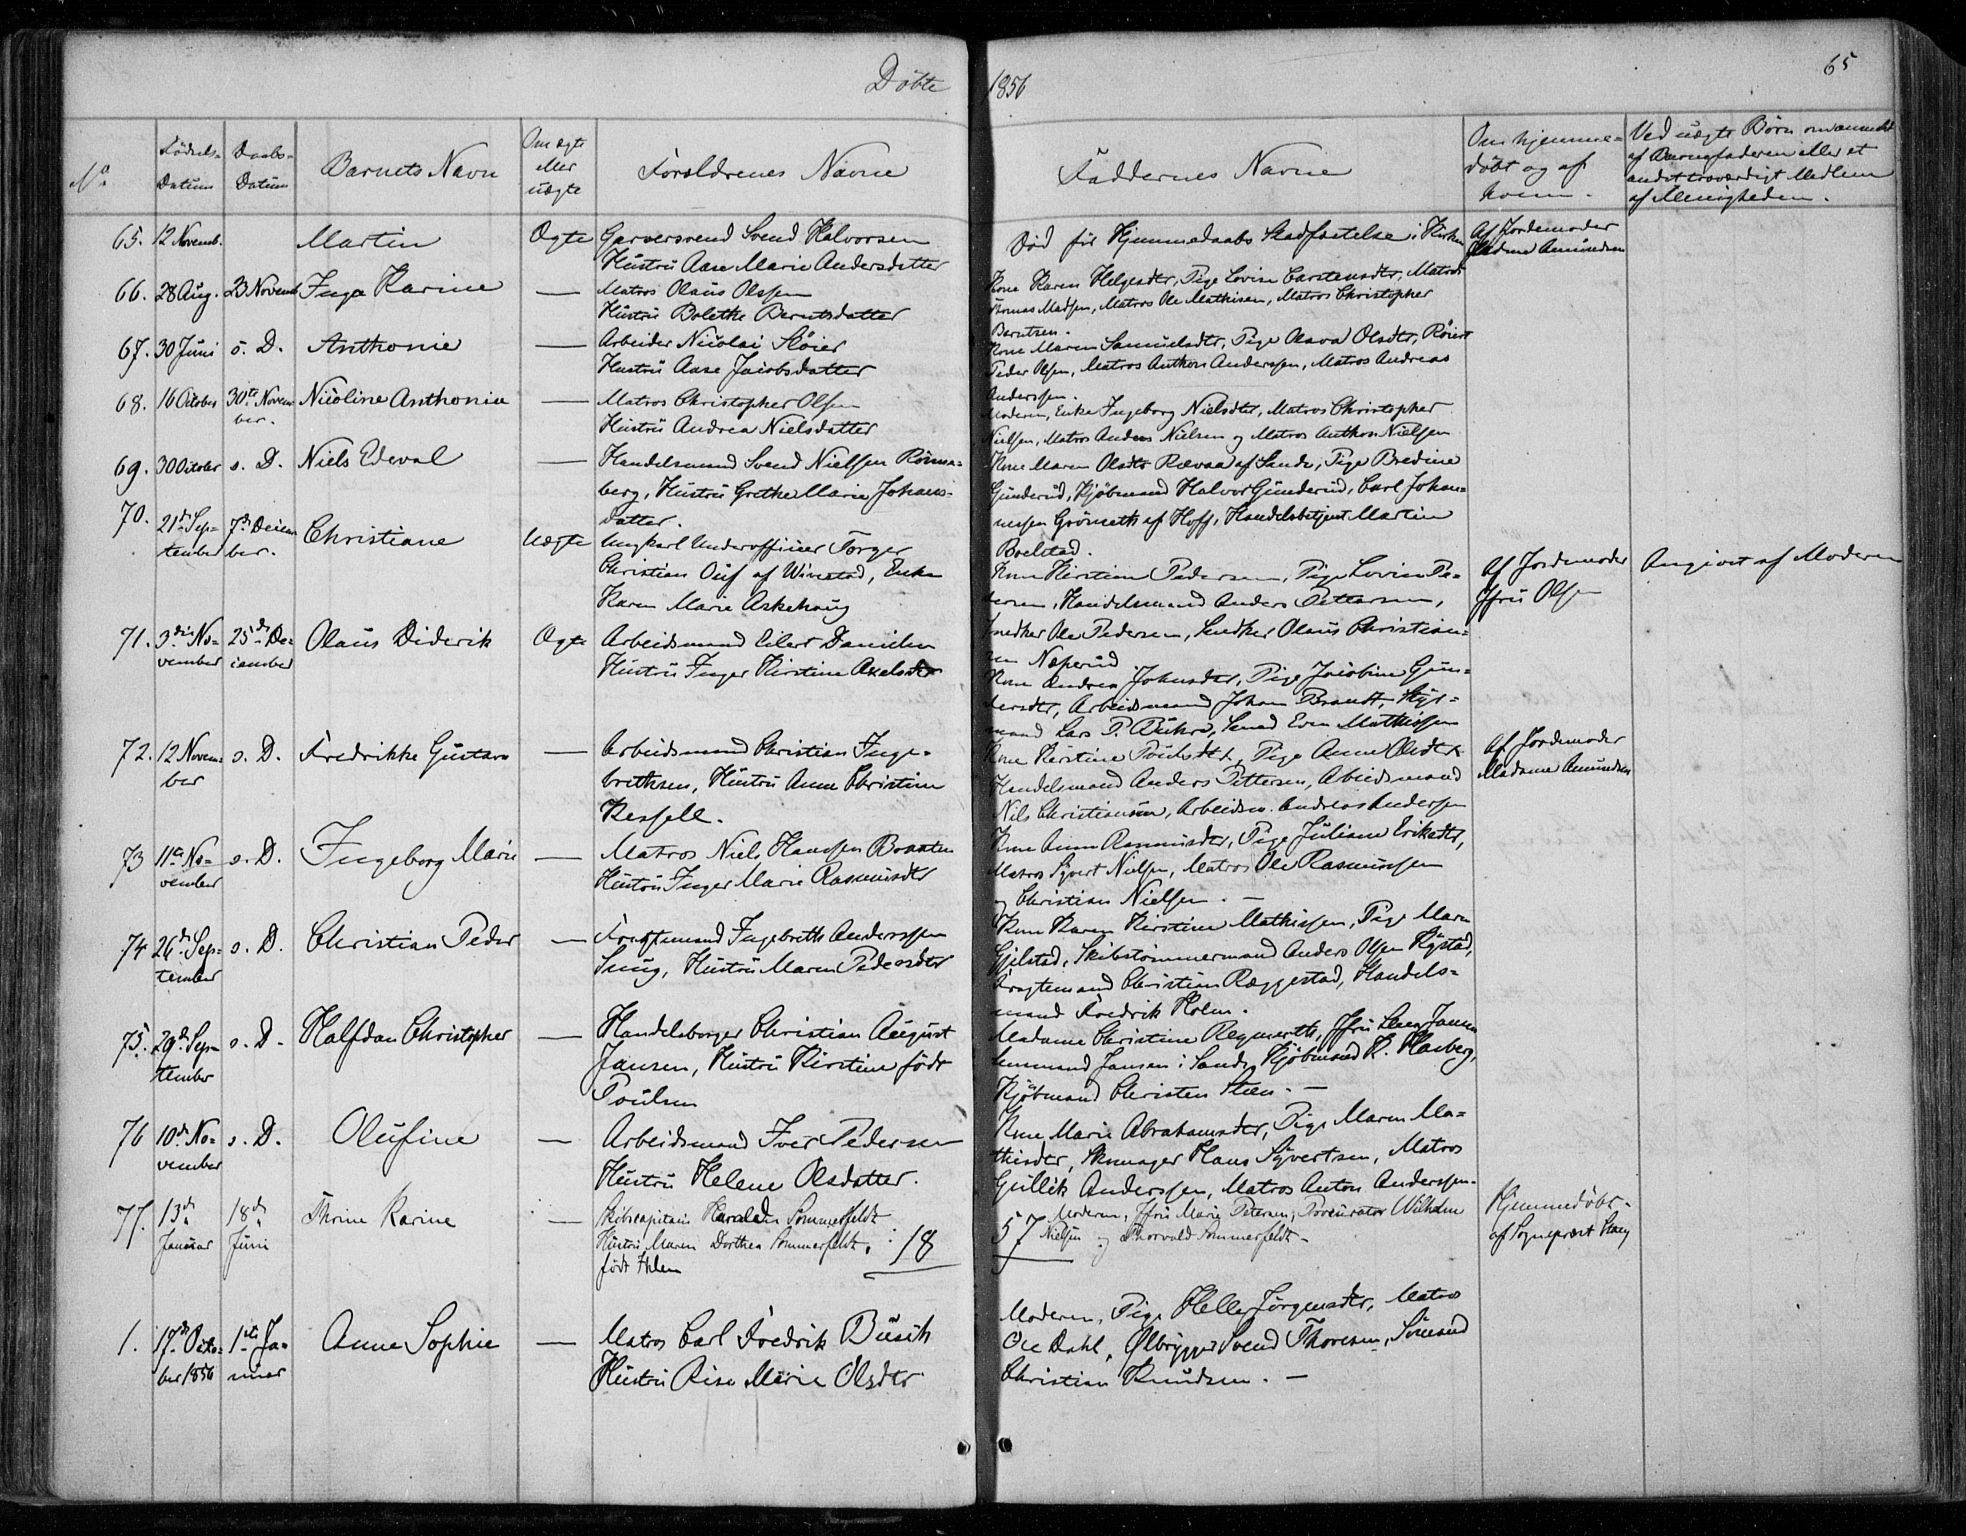 Döbte 1856
65
No.
Födsels-
Datum
Daabs-
Datum
Barnets Navn
Om ægte
eller
uægte
Forældrenes Navne
Faddernes Navne
Om hjemme-
döbt og af
hvem.
Ved uægte Börn om anmeldt
af Barnefaderen eller et
andet troværdigt Medlem
af Menigheden.
65. 12 Novemb. Martin Ægte Garversvend Svend Halvorsen
Hustru Aase Marie Andersdatter
Död för Hjemmedaabs Stadfæstelse i Kirken
Af Jordemoder
Madme Amundsen
66. 28 Aug. 23 Novemb Inga Karine — Matros Olaus Olssen
Hustru Bolethe Berntsdatter
Kone Karen Helgesdtr, Pige Lovise Carstensdtr, Matros
Thomas Madsen, Matros Ole Mathisen, Matros Christopher
Berntsen.
67. 30 Juni s. D. Anthonie — Arbeider Nicolai Höier
Hustru Aase Jacobsdatter
Kone Maren Samuelsdtr, Pige Olava Olsdtr,
Peder Olsen, Matros Anthon Anderssen, Matros Andreas
Anderssen.
68. 16 October 30te Novem-
ber. Nicoline Anthonie — Matros Christopher Olsen
Hustru Andrea Nielsdatter
Moderen, Enke Ingeborg Nielsdtr, Matros Christopher
Nielsen, Matros Anders Nielsen og Matros Anthon Nielssen
69. 30 October s. D. Niels Edeval — Handelsmand Svend Nielssen Römse-
berg, Hustru Grethe Marie Johans-
datter.
Kone Maren Olsdtr Rævaa af Sande, Pige Bredine
Gunderud, Kjöbmand Halvor Gunderud, Carl Johan-
nessen Grönseth af Hoff, Handelsbetjent Martin
Boelstad.
70. 21de Sep-
tember 7de Decem-
ber. Christiane Uægte Ungkarl Underofficer Torger
Christian Ouf af Winestad, Enke
Karen Marie Askehaug
Kone Kirstine Pedersen, Pige Lovise Pe-
dersen, Handelsmand Anders Pettersen,
Snedker Ole Pedersen, Snedker Olaus Christian-
sen Næperud
Af Jordemoder
Jfru Olsen
Angivet af Moderen
71. 3die No-
vember 25de De-
cember Olaus Diderik Ægte Arbeidsmand Eilert Danielsen
Hustru Inger Kirstine Axelsdtr
Kone Andrea Johnsdtr, Pige Jacobine Gun-
dersdtr, Arbeidsmand Johan Brandt,
mand Lars P. Bükes, Smed Even Mathissen
72. 12 Novem-
ber s. D. Fredrikke Gustava — Arbeidsmand Christian Inge-
brethsen, Hustru Anne Christine
Kessell.
Kone Kirstine Poulsdtr, Pige Anne Olsdtr
Handelsmand Anders Pettersen, Arbeidsmand
Nils Christiansen, Arbeidsm. Andreas Andersen
Af Jordemoder
Madame Amundsen
73 11te No-
vember s. D. Ingeborg Marie — Matros Niels Hanssen Braaten
Hustru Inger Marie Rasmusdtr
Kone Anne Rasmusdtr, Pige Juliane Eriksdtr,
Matros Syvert Nielsen, Matros Ole Rasmussen
og Christian Nielsen. —
74 26de Sep-
tember s. D. Christian Peder — Fragtemand Ingebreth Anderssen
Snug, Hustru Maren Pedersdtr
Kone Karen Kirstine Mathissen, Pige Maren
Gjelstad, Skibstömmermand Anders Olsen Rÿstad,
Fragtemand Christian Ræggestad, Handels-
mand Fredrik Holm.
75. 29de Sep-
tember s. D. Halfdan Christopher — Handelsborger Christian August
Jansen, Hustru Kirstine född
Poulsen
Madame Christine Reymerth, Jfru Jansen
Lensmand Jansen i Sande, Kjöbmand K. Hasberg,
Kjöbmand Christen Steen. —
76 10de No-
vember s. D. Olufine — Arbeidsmand Iver Pedersen
Hustru Helene Olsdatter.
Kone Marie Abrahamsdtr, Pige Maren Ma-
thisdtr, Skomager Hans Syvertsen, Matros
Gullik Anderssen, Matros Anton Anderssen.
77. 13de
Januar 18de
Juni Thrine Karine — Skibscapitain Harald Sommerfeldt
Hustru Maren Dorthea Sommerfeldt,
födt Holm
18
57
Moderen, Jfru Marie Petersen, Procurator Wilhelm
Nielsen og Thorvald Sommerfeldt. —
Hjemmedöbt
af Sognepræst Stang
1. 17de Octo-
ber 1856 1ste Ja-
nuar Anne Sophie — Matros Carl Fredrik Busch
Hustru Rise Marie Olsdtr
Moderen, Pige Helle Jörgensdtr, Matros
Ole Dahl, Ölbrygger Svend Thoresen, Sömand
Christian Knudsen. —